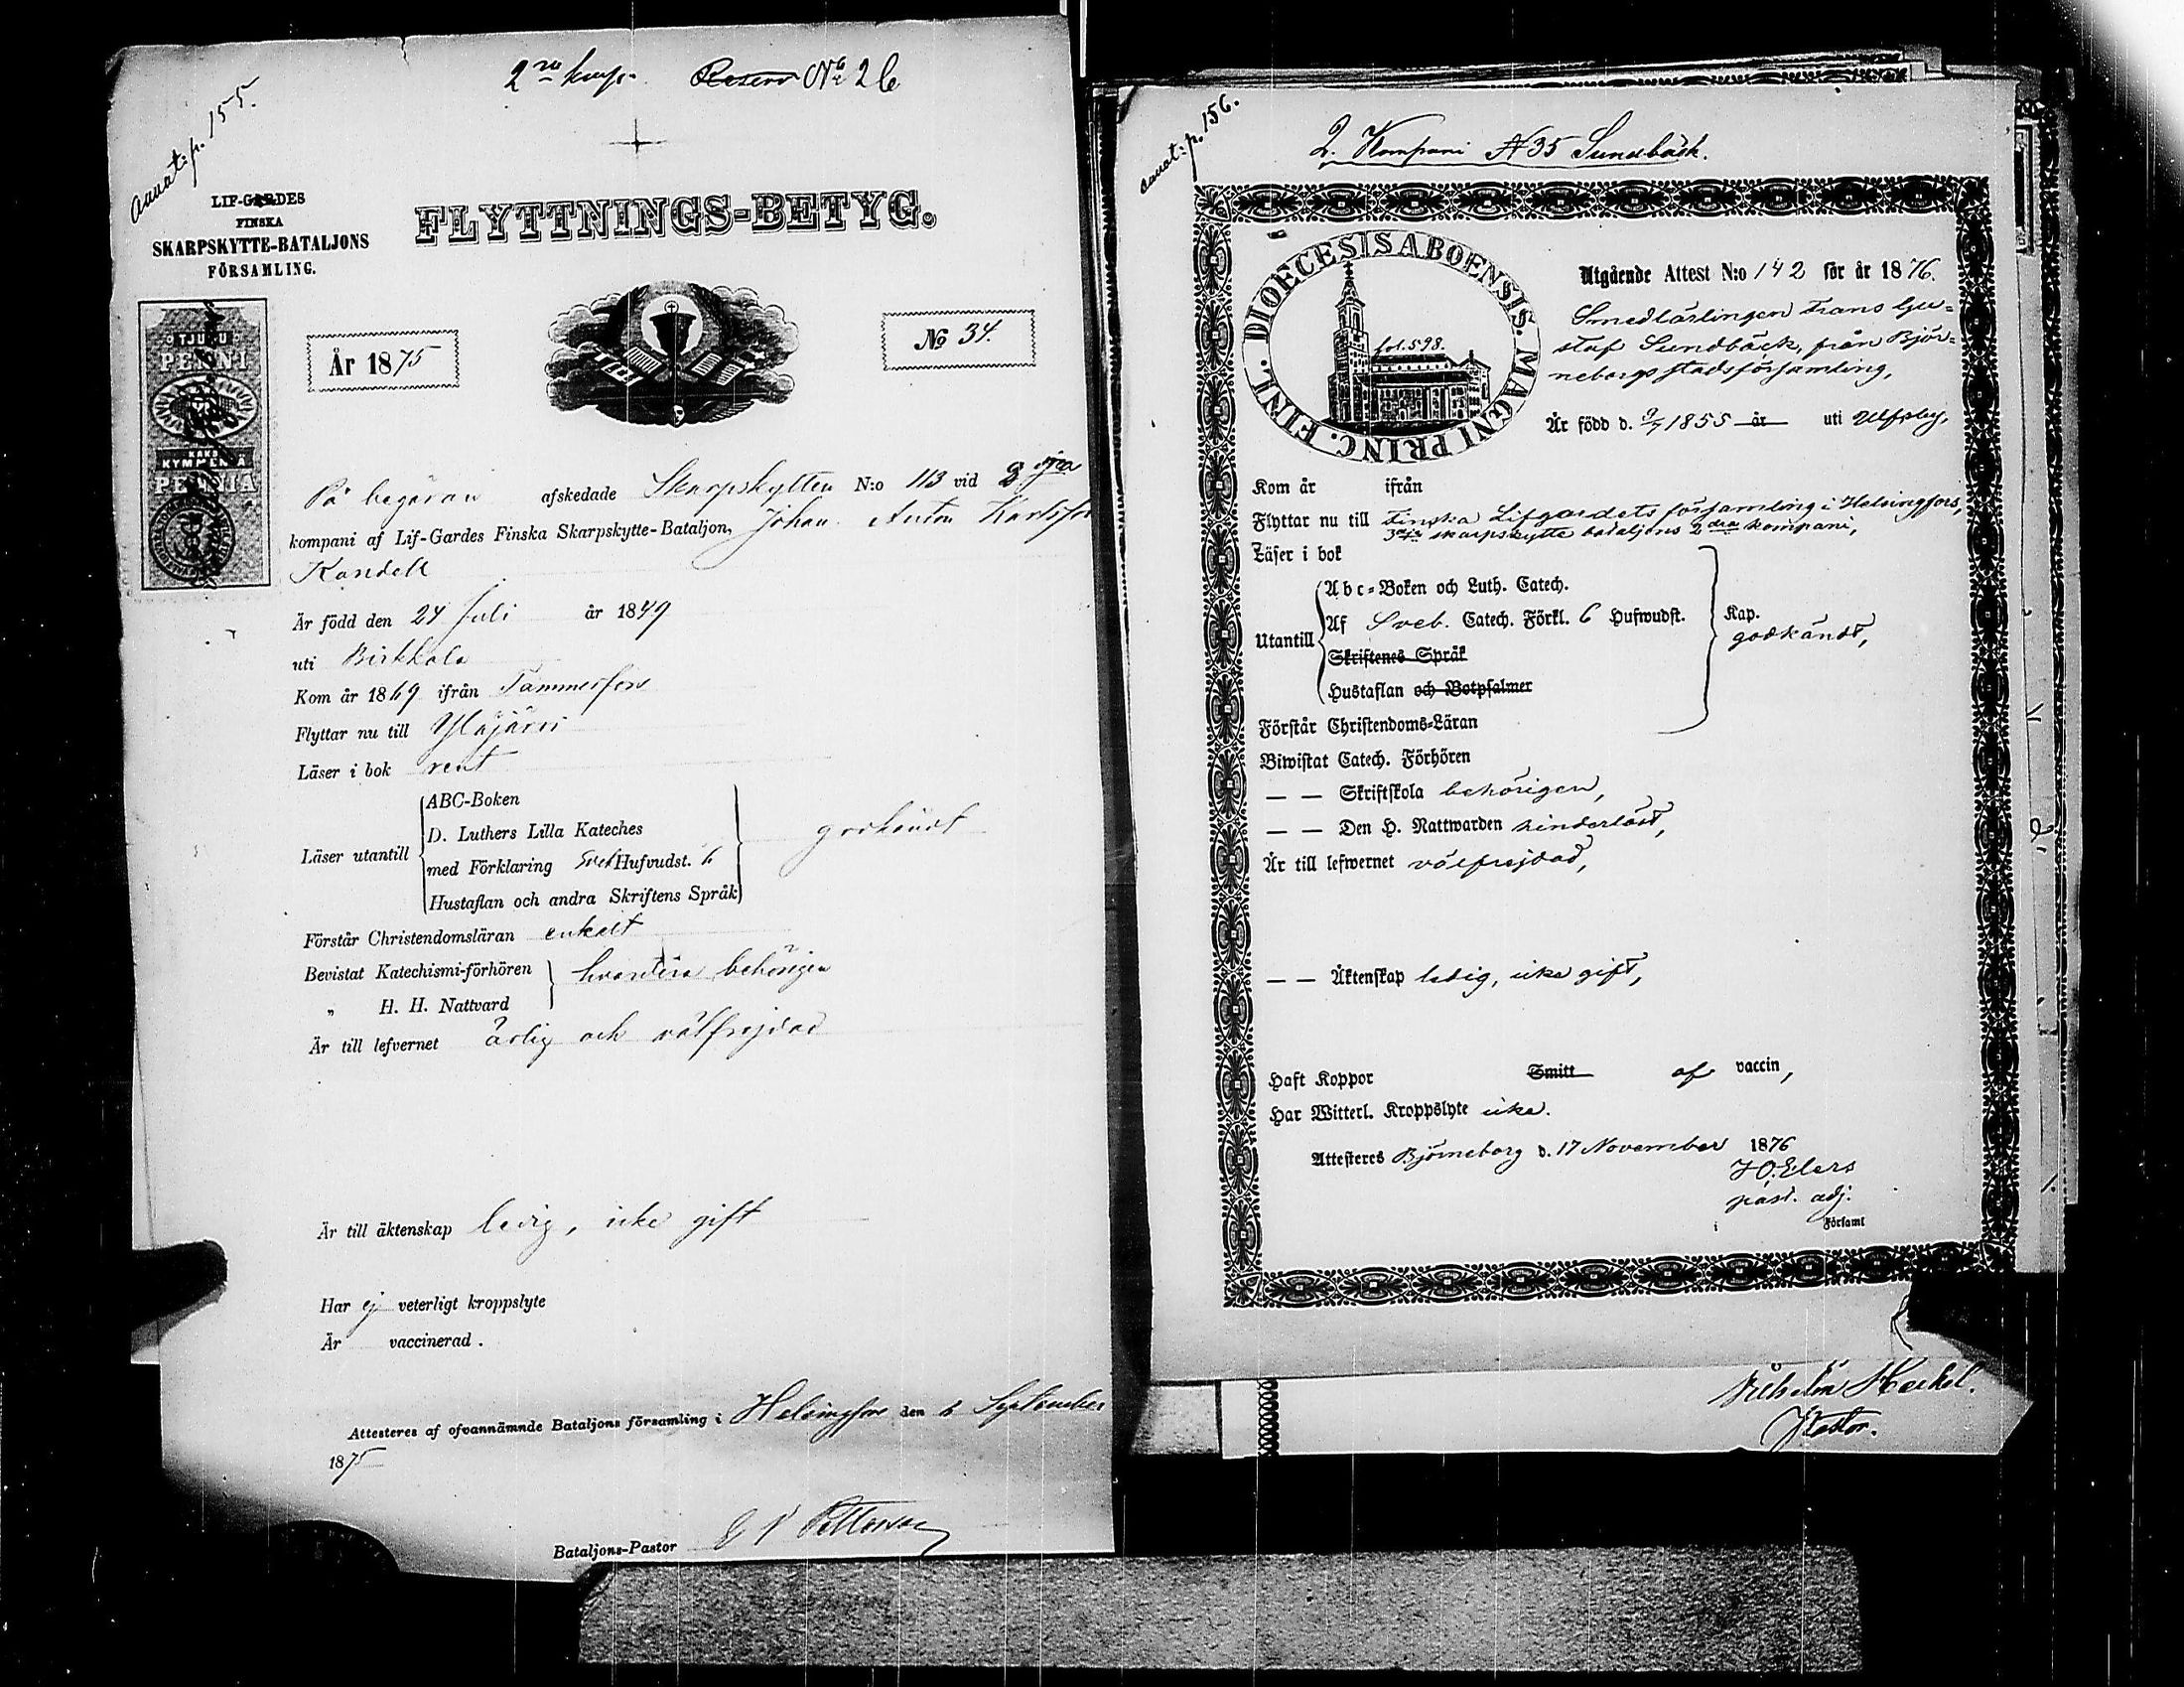 annot: p. 155.
2ra komp. Reserv No 26
LIF-GARDES
FINSKA
SKARPSKYTTE-BATALJONS
FÖRSAMLING.
FLYTTNINGS-BETYG.
TJUGU
PENNI
KAKSI
KYMPENTÄ
PENNIÄ
År 1875
No 34.
På begäran afskedade Skarpskytten N:o 113 vid 3dje
kompani af Lif-Gardes Finska Skarpskytte-Bataljon, Johan Anton Karlsson
Kandell
Är född den 24 Juli år 1849
uti Birkkala
Kom år 1869 ifrån Tammerfors
Flyttar nu till Ylöjärvi
Läser i bok rent
Läser utantill
ABC-Boken
D. Luthers Lilla Kateches
med Förklaring Sveb Hufvudst. 6
Hustaflan och andra Skriftens Språk
godkändt
Förstår Christendomsläran enkelt
Bevistat Katechismi-förhören
„ H. H. Nattvard
hvartdera behörigen
Är till lefvernet ärlig och välfrejdad
Är till äktenskap ledig, icke gift
Har ej veterligt kroppslyte
Är vaccinerad.
Attesteres af ofvannämnde Bataljons församling i Helsingfors den 6 September
1875
Bataljons-Pastor
annot: p. 156.
2. Kompani N 35 Sundbäck.
DIOECESIS ABOENSIS. MAGNI PRINC. FINL.
fol. 598.
Utgående Attest N:o 142 för år 1876.
Smedlärlingen Frans Gu-
staf Sundbäck, från Björ-
neborgs stadsförsamling,
Är född d. 9/7 1855 år uti Ulfsby,
Kom år ifrån
Flyttar nu till Finska Lifgardets församling i Helsingfors,
3dje skarpskytte bataljons 2dra kompani,
Läser i bok
Utantill
Abc-Boken och Luth. Catech.
Af Sveb. Catech. Förkl. 6 Hufwudst.
Skriftenes Språk
Hustaflan och Botpsalmer
Kap.
godkändt,
Förstår Christendoms-Läran
Biwistat Catech. Förhören
— — Skriftskola behörigen,
— — Den H. Nattwarden hinderlöst,
Är till lefwernet välfrejdad,
— — Äktenskap ledig, icke gift,
Haft Koppor Smitt af vaccin,
Har Witterl. Kroppslyte icke.
Attesteres Björneborg d. 17 November 1876
H O. Elers
past. adj.
Församl
Vilhelm Heikel.
Pastor.